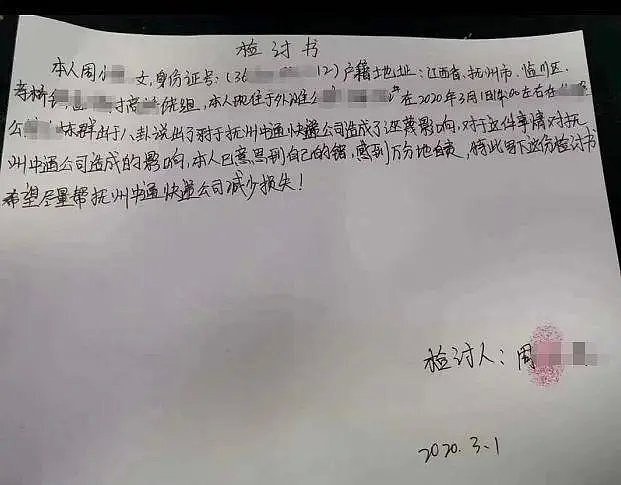 检讨书
本人周小 女,身份证号:(36 12)户籍土地址:江西省、抚州市.临川区.
寿桥 村高 统组,本人现住于外滩公 在2020年3月1日14:00左右在
公 体群出于八卦说出了对于抚州中通快递公司造成了污蔑影响,对于这件事情对抚
州中通公司造成的影响,本人已意思到自己的错,感到万分地自责,特此写下这份检讨书
希望尽量帮抚州中通快递公司减少损失!
检讨人:周
2020.3.1